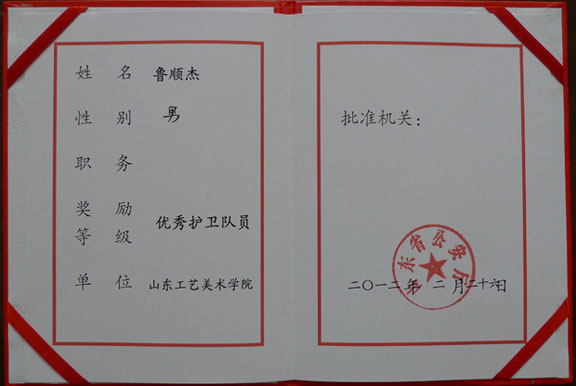 姓名 鲁顺杰
性别 男
职务
奖励
等级 优秀护卫队员
单位 山东工艺美术学院
批准机关：
山东省公安厅
二〇一二年 二月二十六日